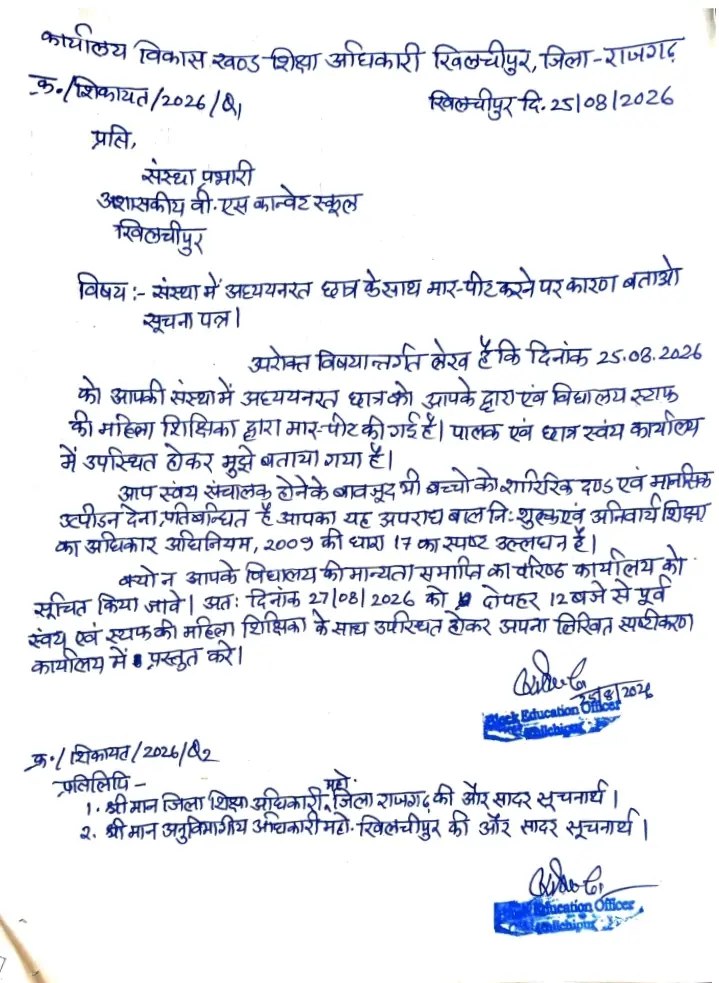 कार्यालय विकास खण्ड शिक्षा अधिकारी खिलचीपुर, जिला-राजगढ़
क्र./शिकायत/2026/81
खिलचीपुर दि. 25/08/2026
प्रति,
संस्था प्रभारी
अशासकीय वी.एस कान्वेट स्कूल
खिलचीपुर
विषय :- संस्था में अध्ययनरत छात्र के साथ मार-पीट करने पर कारण बताओ
सूचना पत्र।
उपरोक्त विषयान्तर्गत लेख है कि दिनांक 25.08.2026
को आपकी संस्था में अध्ययनरत छात्र को आपके द्वारा एवं विद्यालय स्टाफ
की महिला शिक्षिका द्वारा मार-पीट की गई है। पालक एवं छात्र स्वंय कार्यालय
में उपस्थित होकर मुझे बताया गया है।
आप स्वंय संचालक होने के बावजूद भी बच्चो को शारिरिक दण्ड एवं मानसिक
उत्पीडन देना, प्रतिबन्धित है आपका यह अपराध बाल नि:शुल्क एवं अनिवार्य शिक्षा
का अधिकार अधिनियम, 2009 की धारा 17 का स्पष्ट उल्लघन है।
क्यो न आपके विद्यालय की मान्यता समाप्ति का वरिष्ठ कार्यालय को
सूचित किया जावे। अत: दिनांक 27/08/2026 को दोपहर 12 बजे से पूर्व
स्वंय एवं स्टाफ की महिला शिक्षिका के साथ उपस्थित होकर अपना लिखित स्पष्टीकरण
कार्यालय में प्रस्तुत करे।
25/8/2026
Block Education Officer
Khilchipur
क्र./शिकायत/2026/82
प्रतिलिपि -
1. श्रीमान जिला शिक्षा अधिकारी महो. जिला राजगढ़ की और सादर सूचनार्थ।
2. श्रीमान अनुविभागीय अधिकारी महो. खिलचीपुर की और सादर सूचनार्थ।
Block Education Officer
Khilchipur